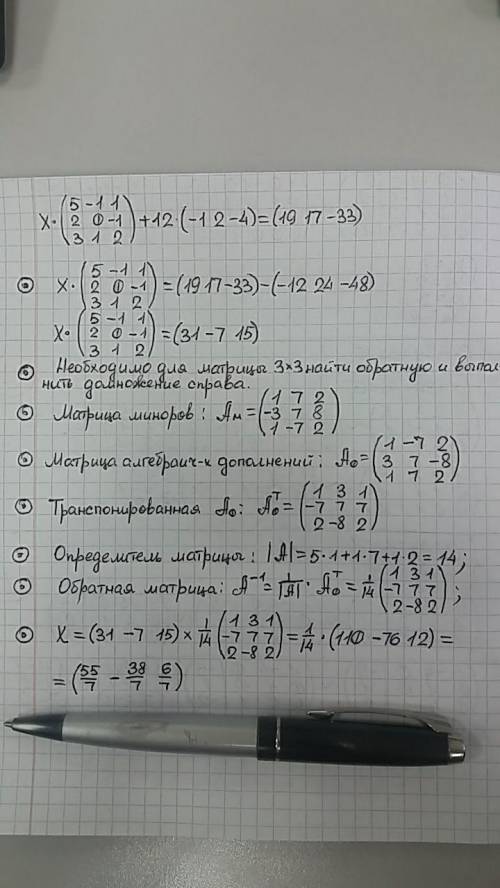 X·(5 -1 1; 2 0 -1; 3 1 2)+12·(-1 2 -4)=(19 17 -33)
X·(5 -1 1; 2 0 -1; 3 1 2)=(19 17 -33)-(-12 24 -48)
X·(5 -1 1; 2 0 -1; 3 1 2)=(31 -7 15)
Необходимо для матрицы 3×3 найти обратную и выпол
нить домножение справа.
Матрица миноров: Aм=(1 7 2; -3 7 8; 1 -7 2)
Матрица алгебраич-х дополнений: Aф=(1 -7 2; 3 7 -8; 1 7 2)
Транспонированная Aф: Aф^T=(1 3 1; -7 7 7; 2 -8 2)
Определитель матрицы: |A|=5·1+1·7+1·2=14;
Обратная матрица: A^-1=1/|A|·Aф^T=1/14(1 3 1; -7 7 7; 2 -8 2);
X=(31 -7 15)×1/14(1 3 1; -7 7 7; 2 -8 2)=1/14·(110 -76 12)=
=(55/7 -38/7 6/7)